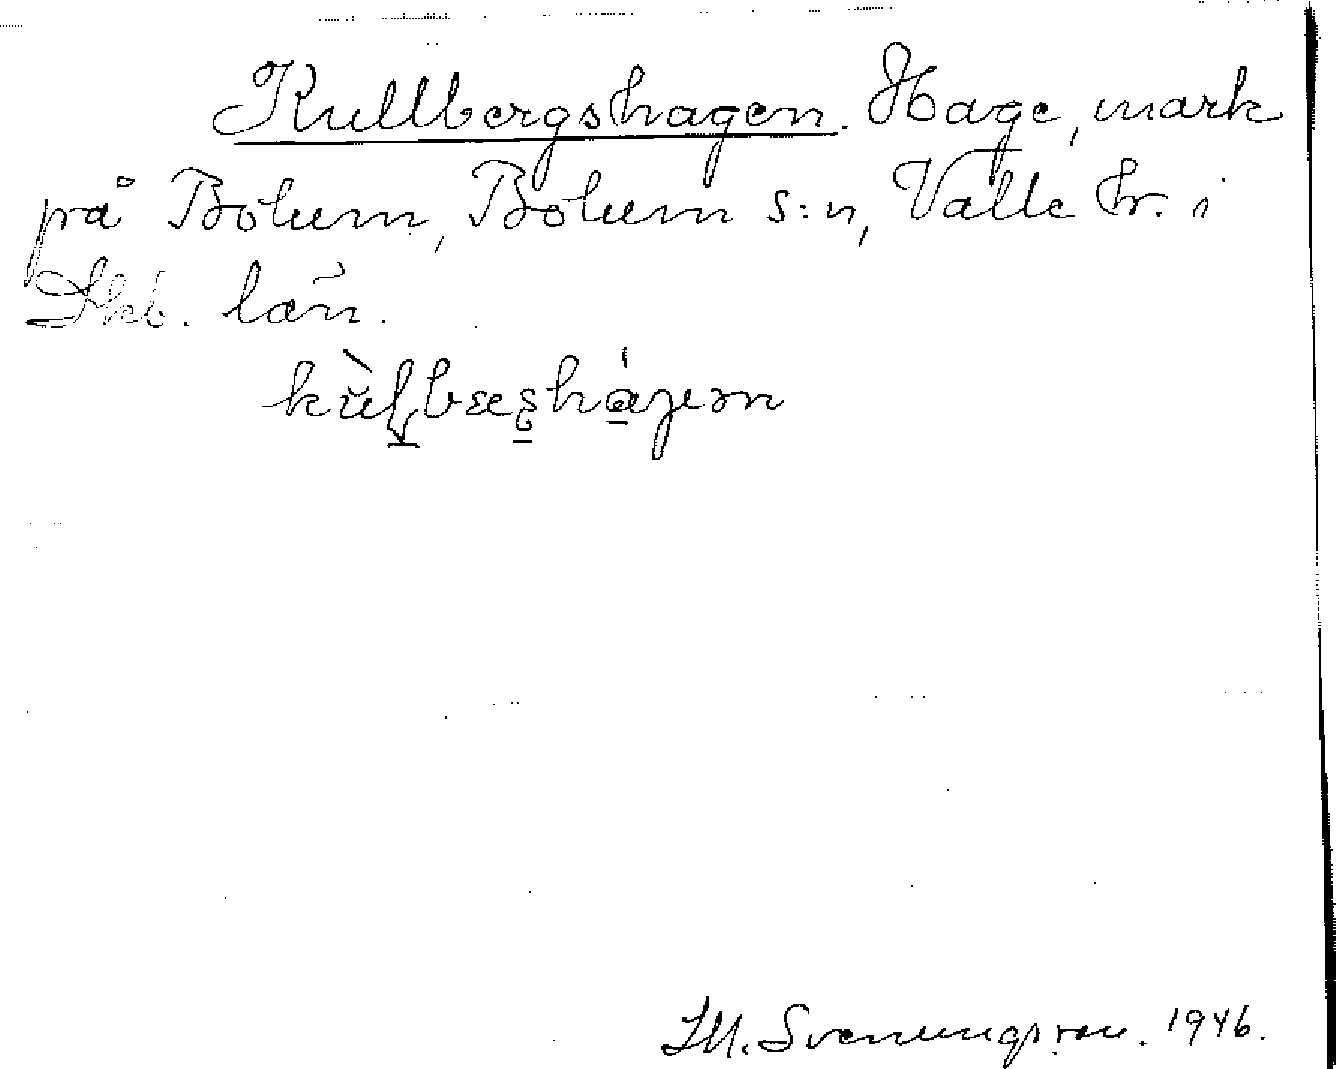 Kullbergshagen. Hage, mark
på Bolum, Bolum s:n, Valle hr. i
Skb. län.
Svenungsson. 1946.